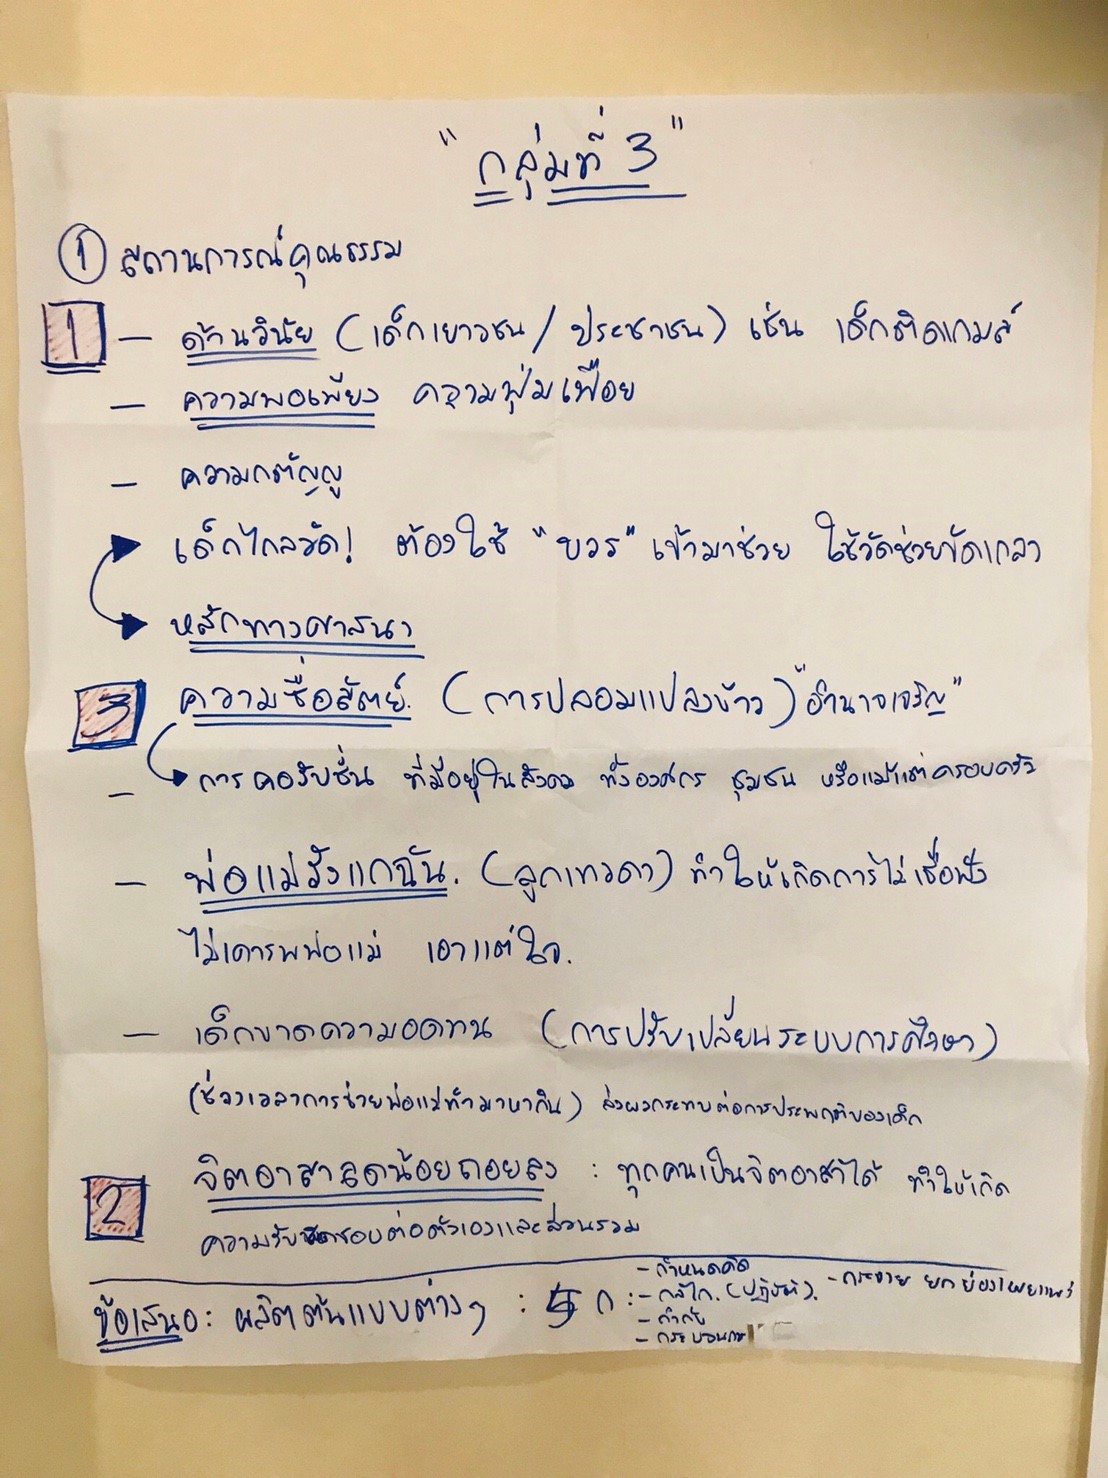 "กลุ่มที่ 3"
① สถานการณ์คุณธรรม
1 - ด้านวินัย (เด็กเยาวชน/ประชาชน) เช่น เด็กติดเกมส์
- ความพอเพียง ความฟุ่มเฟือย
- ความกตัญญู
เด็กไกลวัด! ต้องใช้ "บวร" เข้ามาช่วย ใช้วัดช่วยขัดเกลา
หลักทางศาสนา
3 ความซื่อสัตย์. (การปลอมแปลงข้าว) "อำนาจเจริญ"
- การคอรัปชั่น ที่มีอยู่ในสังคม ทั้งองค์กร ชุมชน หรือแม้แต่ครอบครัว
- พ่อแม่รังแกฉัน. (ลูกเทวดา) ทำให้เกิดการไม่เชื่อฟัง
ไม่เคารพพ่อแม่ เอาแต่ใจ.
- เด็กขาดความอดทน (การปรับเปลี่ยนระบบการศึกษา)
(ช่วงเวลาการช่วยพ่อแม่ทำมาหากิน) ส่งผลกระทบต่อการประพฤติของเด็ก
2 จิตอาสาลดน้อยถอยลง : ทุกคนเป็นจิตอาสาได้ ทำให้เกิด
ความรับผิดชอบต่อตัวเองและส่วนรวม
ข้อเสนอ : ผลิตต้นแบบต่างๆ : 5 ก :
- กำหนดคิด
- กลไก. (ปฏิบัติ). - กระจาย ยกย่องเผยแพร่
- กำกับ
- กระบวนการ